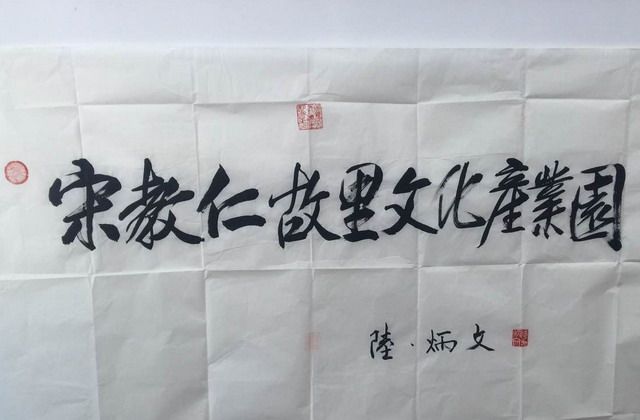 宋教仁故里文化產業園
陸·炳文